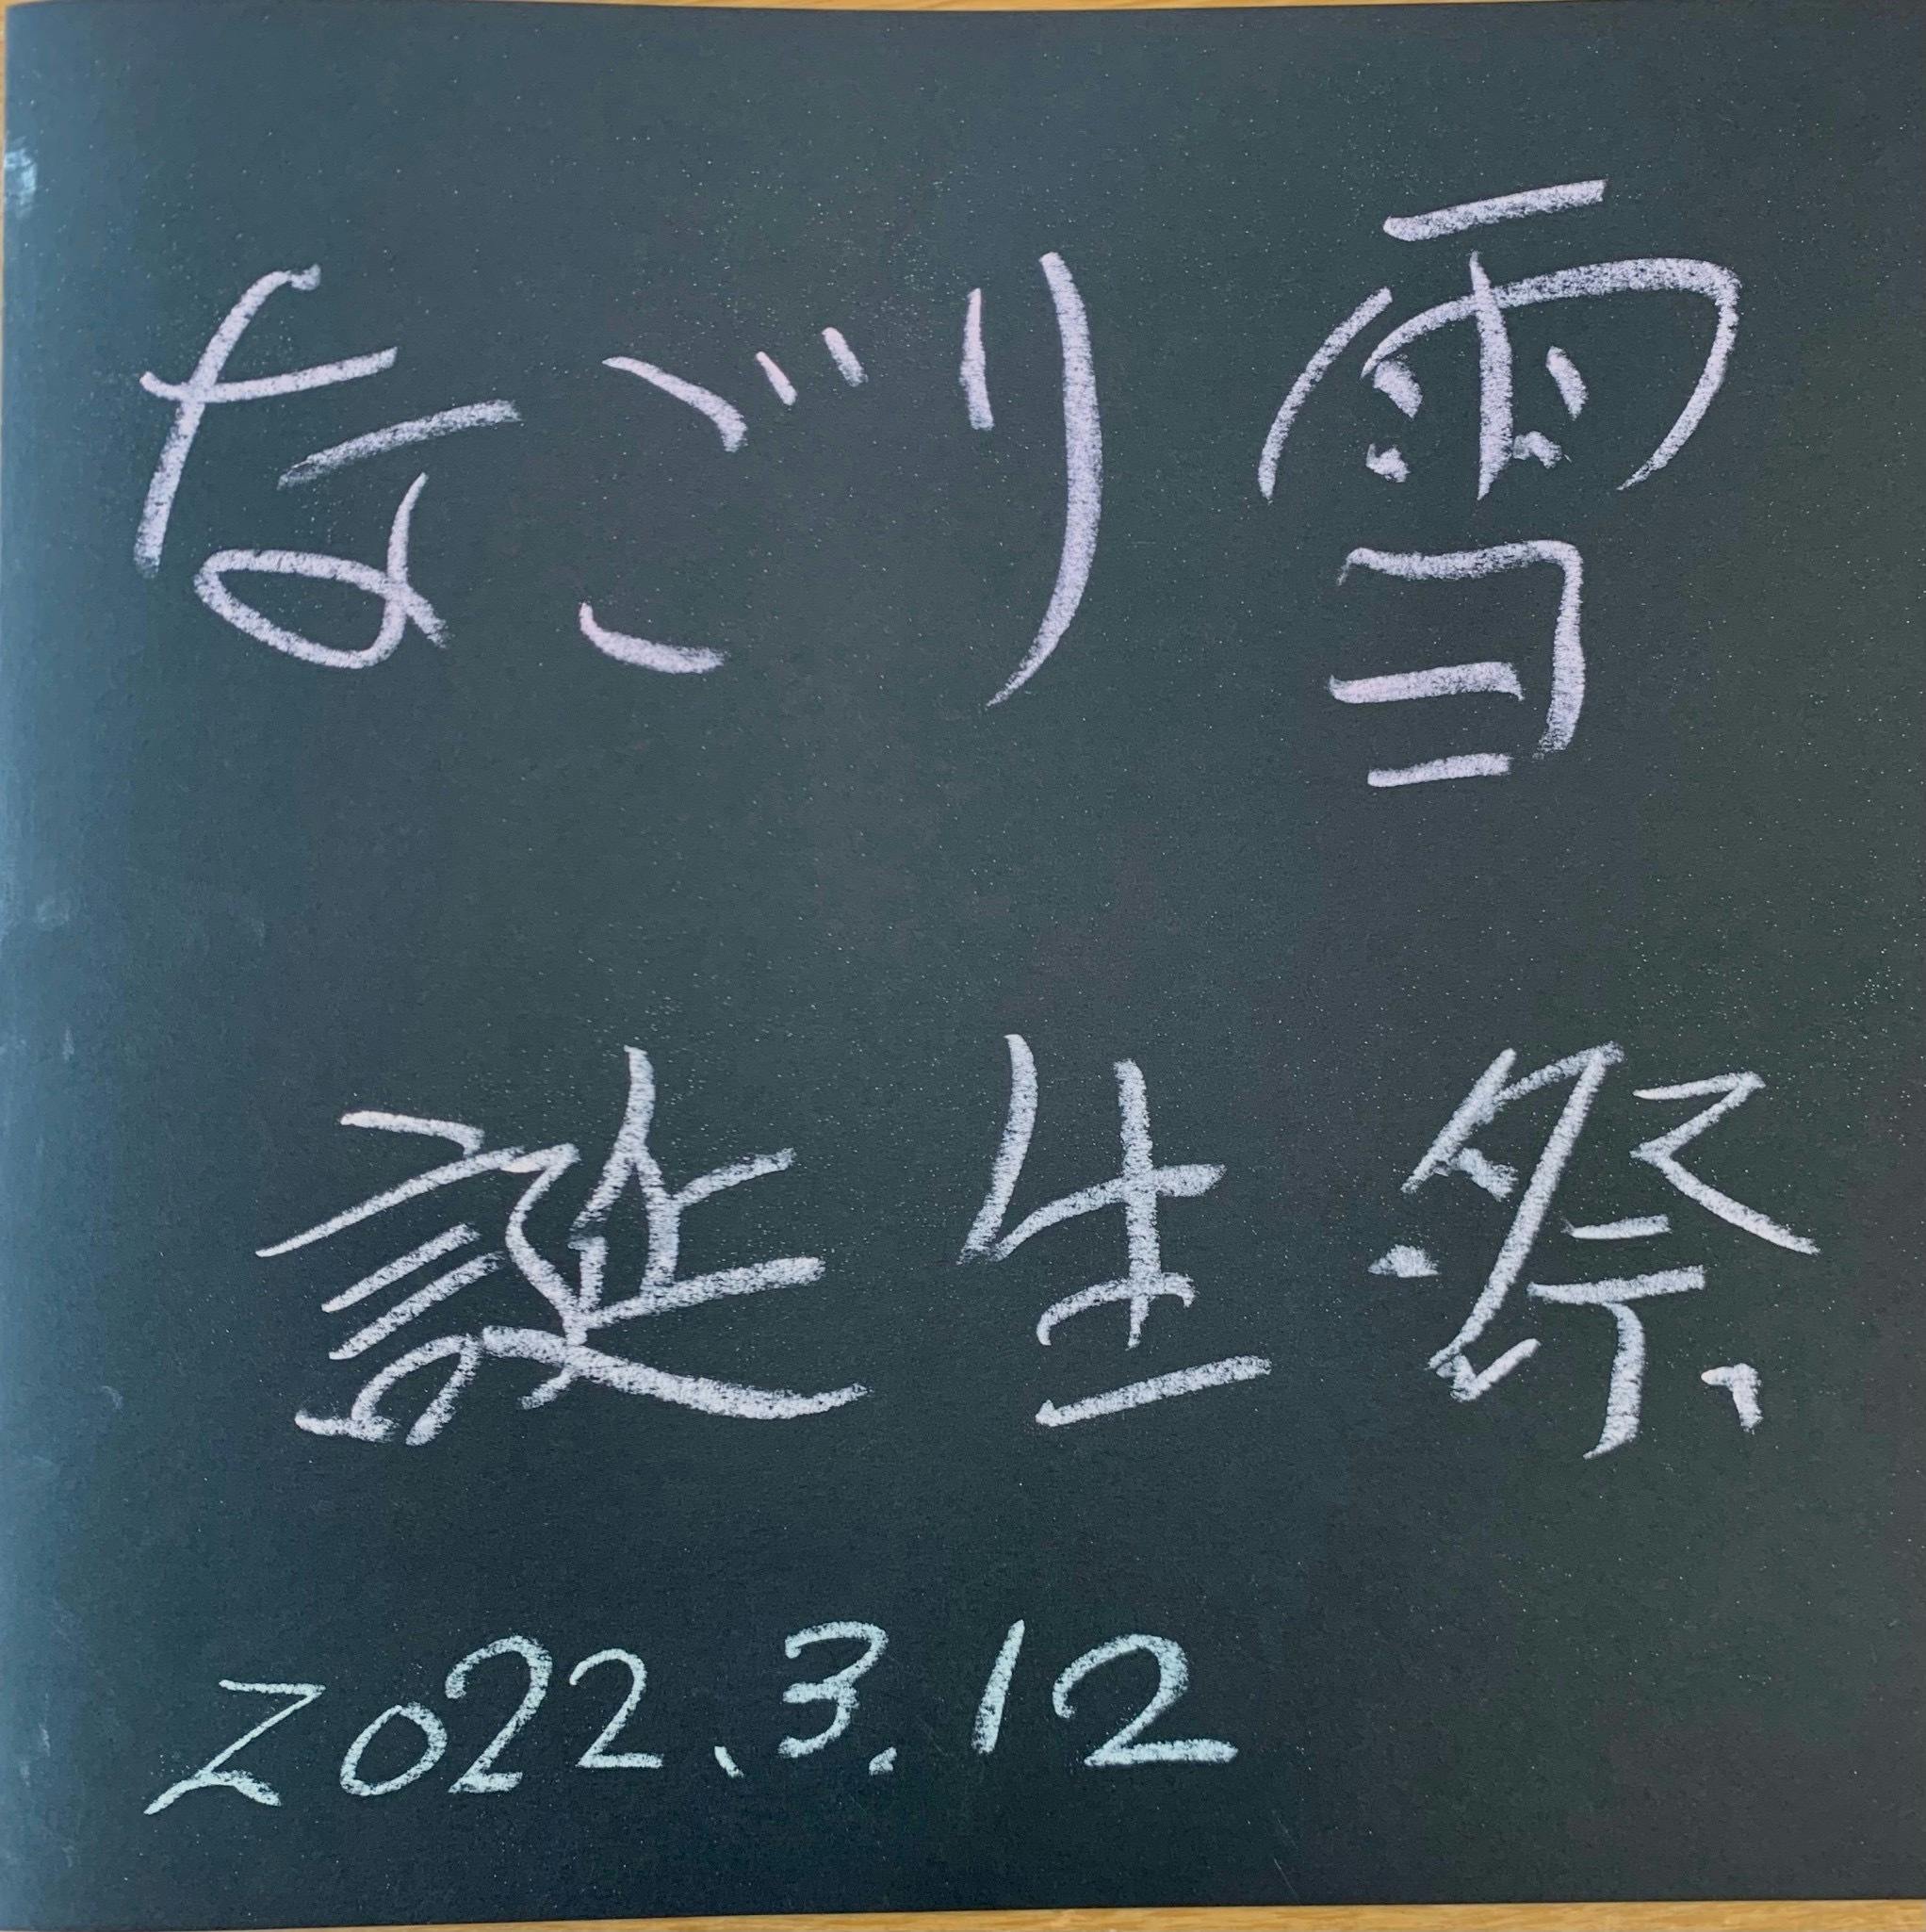 なごり雪
誕生祭
2022.3.12